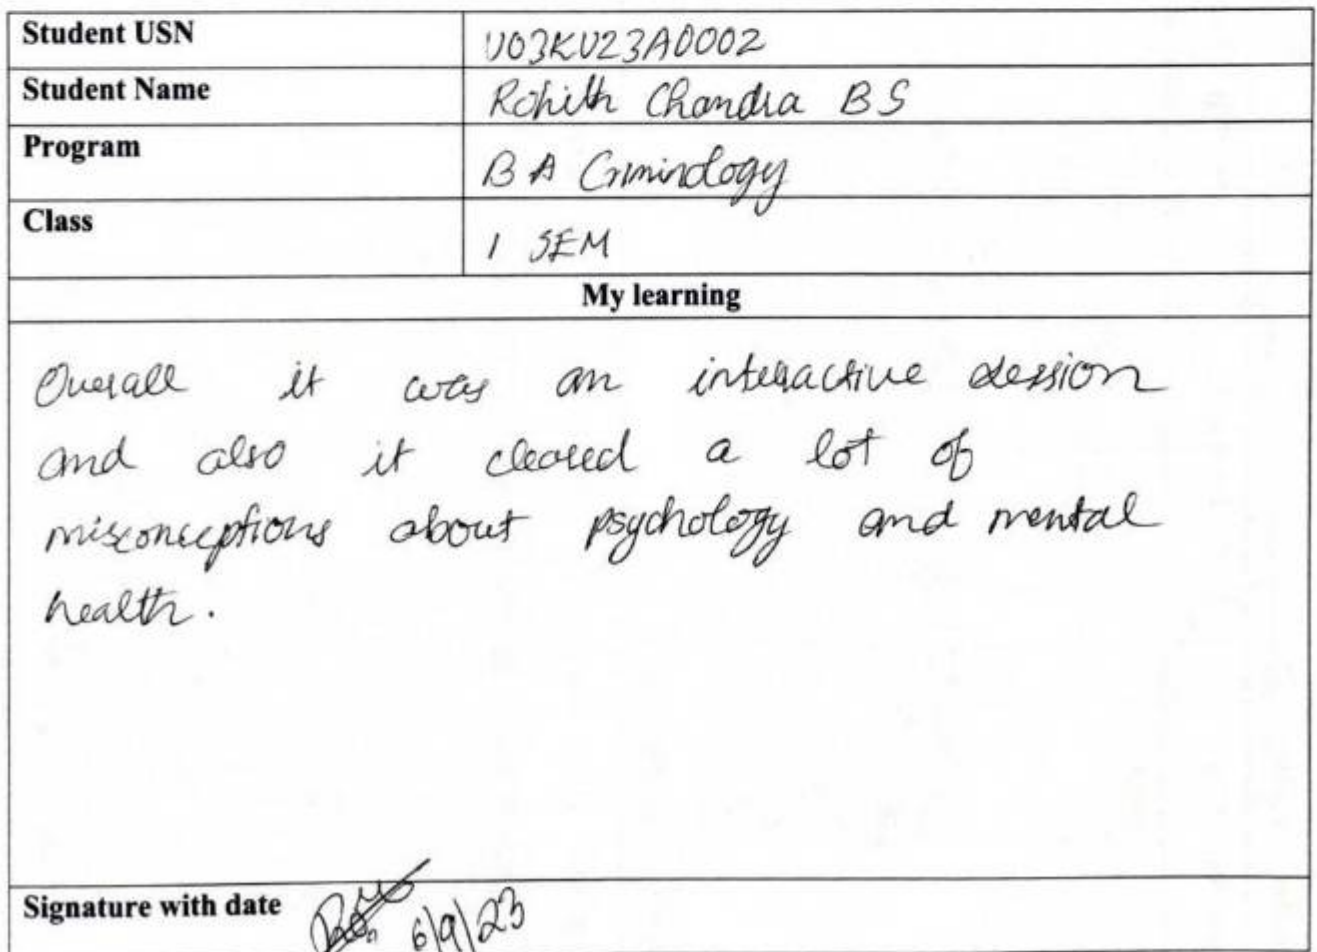 Student USN U03KU23A0002
Student Name Rohith Chandra BS
Program BA Criminology
Class 1 SEM
My learning
Overall it was an interactive session
and also it cleared a lot of
misconceptions about psychology and mental
health.
Signature with date 6/9/23